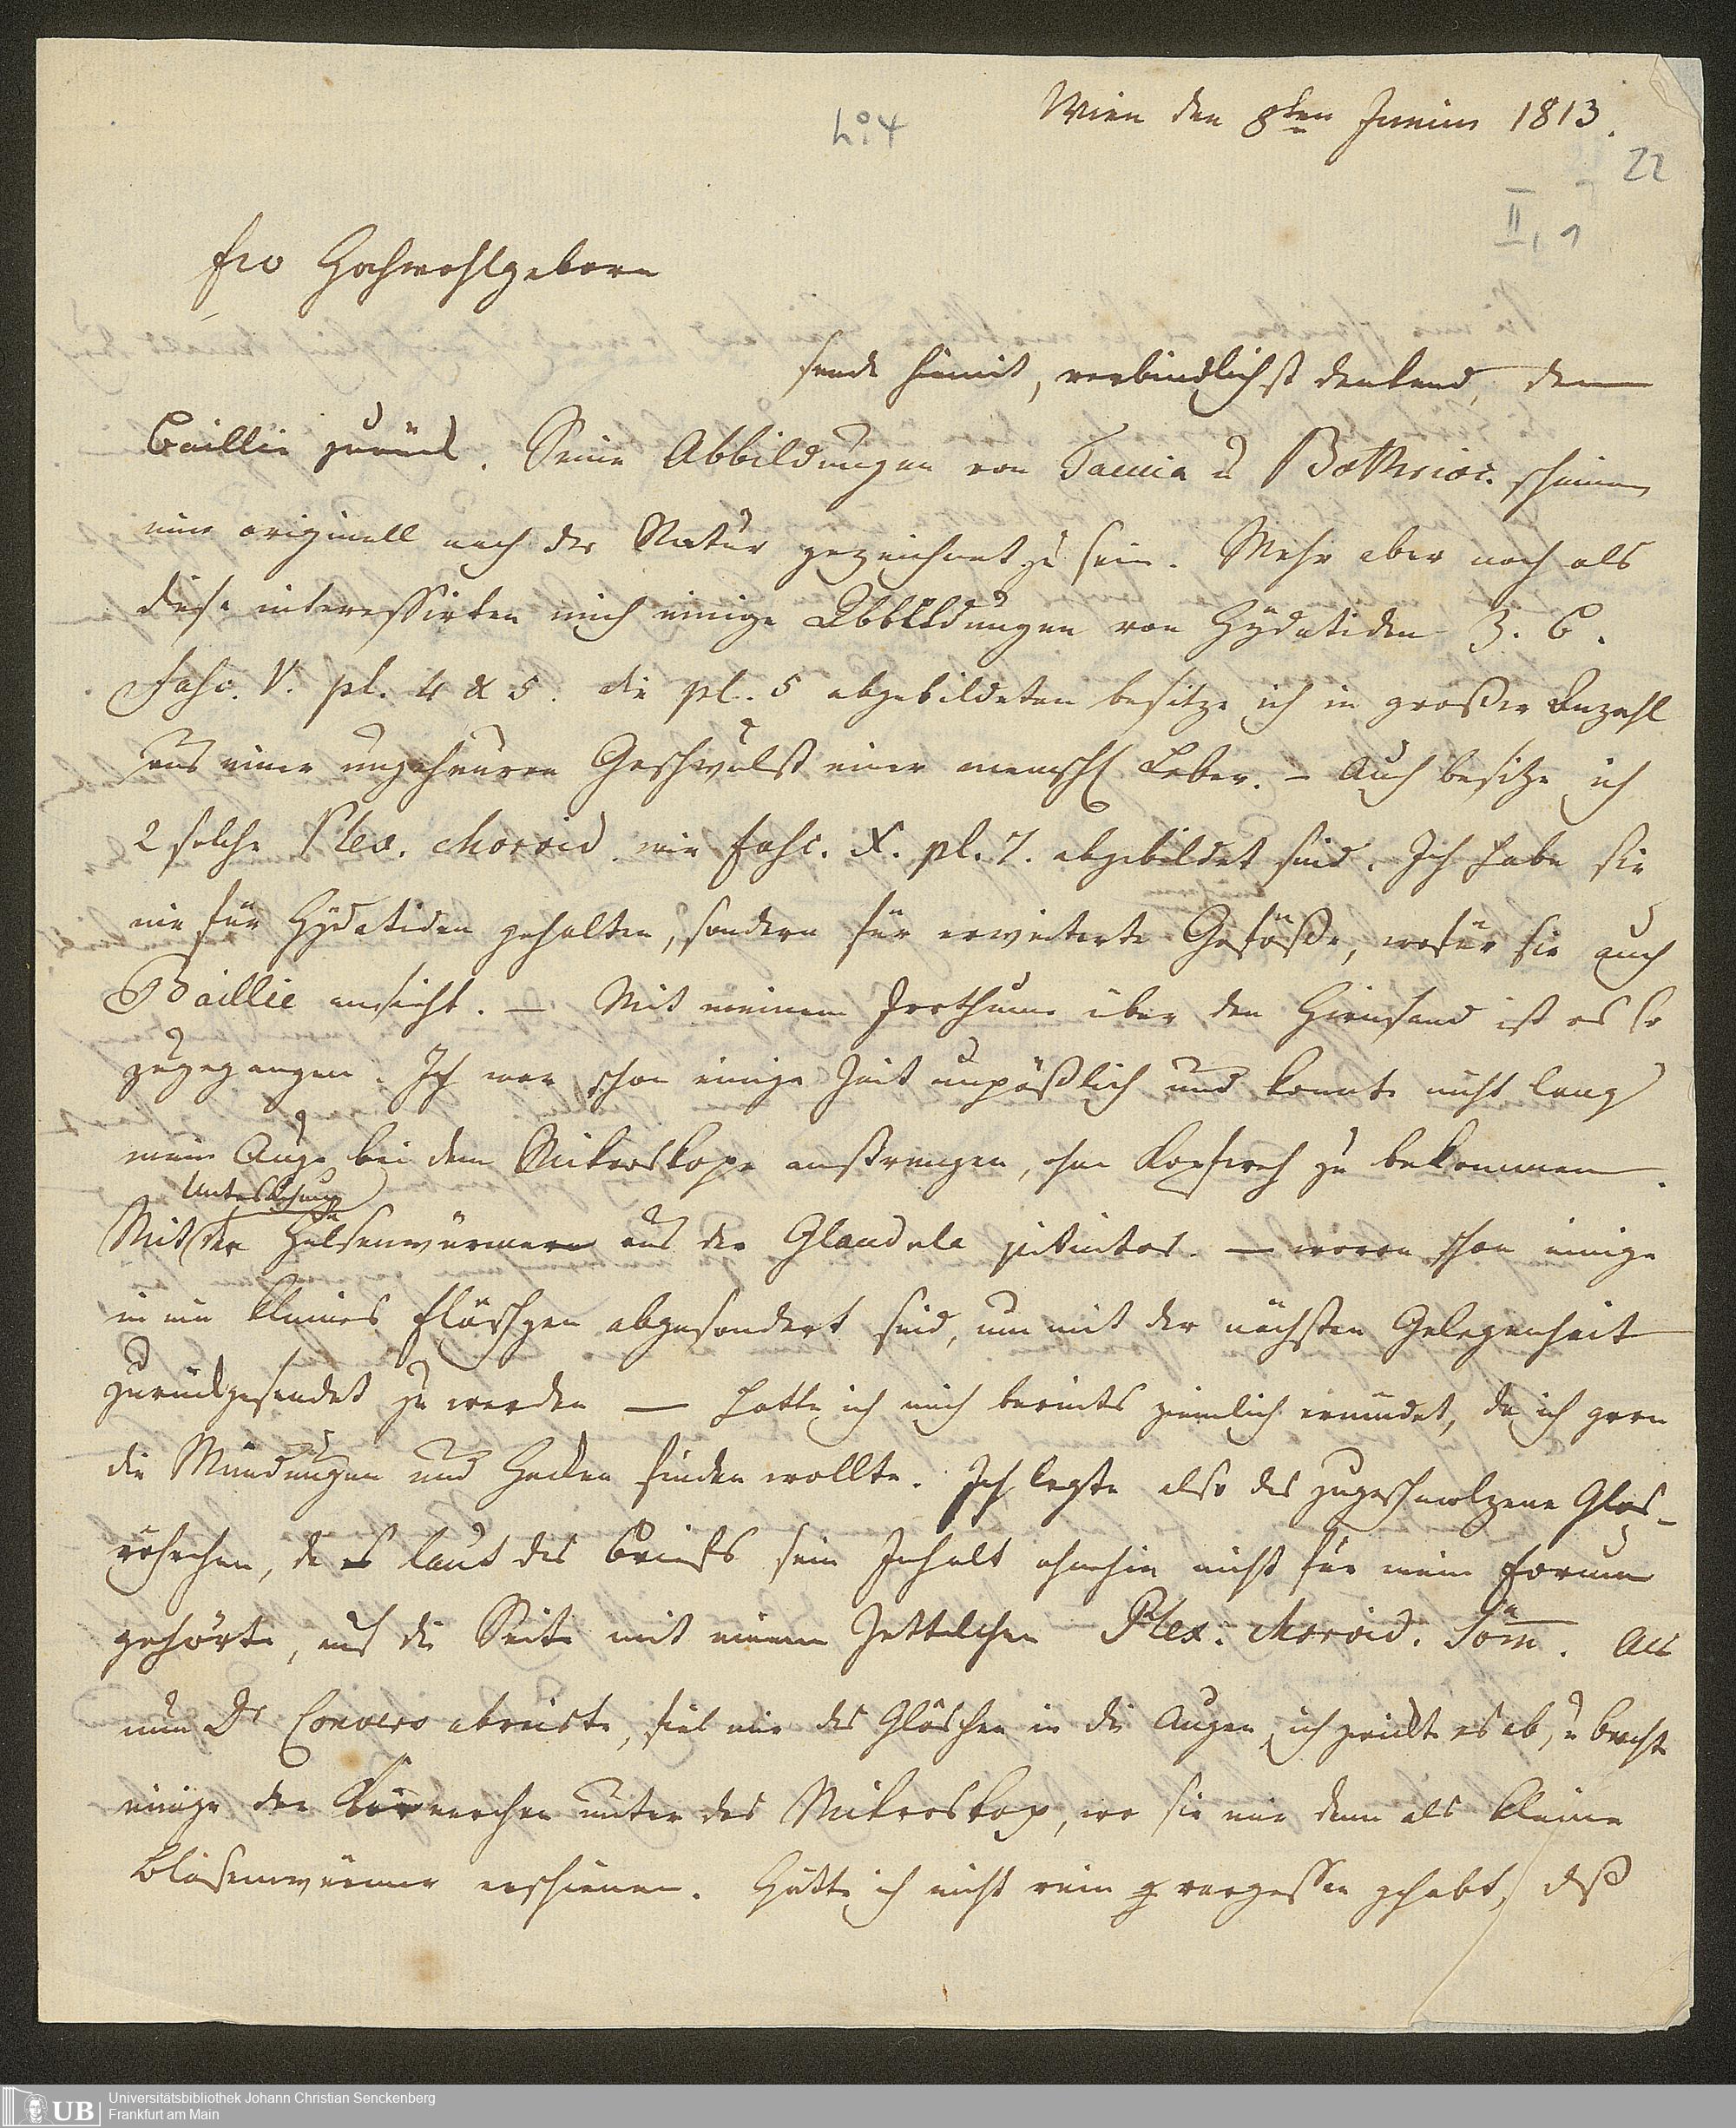 Wien den 8ten Junius 1813.
No 4
22
II, 1
Euo Hochwohlgeborn
sende hiemit, verbindlichst dankend, den
Baillie zurück. Seine Abbildungen von Taenia u Bothrioc. scheinen
mir originell nach der Natur gezeichnet zu sein. Mehr aber noch als
diese interessirten mich einige Abbildungen von Hÿdatiden z. B.
Fasc. V. pl. 4 & 5. die pl. 5 abgebildeten besitze ich in großer Anzahl
aus einer ungeheuren Geschwulst einer menschl Leber. – Auch besitze ich
2 solche Plex. choroid. wie Fasc. X. pl. 7. abgebildet sind. Ich habe sie
nie für Hÿdatiden gehalten, sondern für erweiterte Gefäße, wofür sie auch
Baillie ansieht. — Mit meinem Irrthume über den Hirnsand ist es so
zugegangen. Ich war schon einige Zeit unpäßlich und konnte nicht lang
mein Auge bei dem Mikroskope anstrengen, ohne Kopfweh zu bekommen.
Untersuchung
Mit der Hülsenwürmer aus der Glandula pituitar. — wovon schon einige
in ein kleines Fläschgen abgesondert sind, um mit der nächsten Gelegenheit
zurückgesendet zu werden — hatte ich mich bereits ziemlich ermüdet, da ich gern
die Mündungen und Hacken finden wollte. Ich legte also das zugeschmolzene Glas-
röhrchen, da es laut des Briefs sein Inhalt ohnehin nicht für mein Forum
gehörte, auf die Seite mit einem Zettelchen Plex. choroid. Söm. Als
nun Dr Convers abreiste, fiel mir das Gläschen in die Augen, ich zwickte es ab, u brachte
einige der Körnerchen unter das Mikroskop, wo sie mir denn als kleine
Blasenwürmer erschienen. Hätte ich nicht rein vergessen gehabt, daß
UB
Universitätsbibliothek Johann Christian Senckenberg
Frankfurt am Main